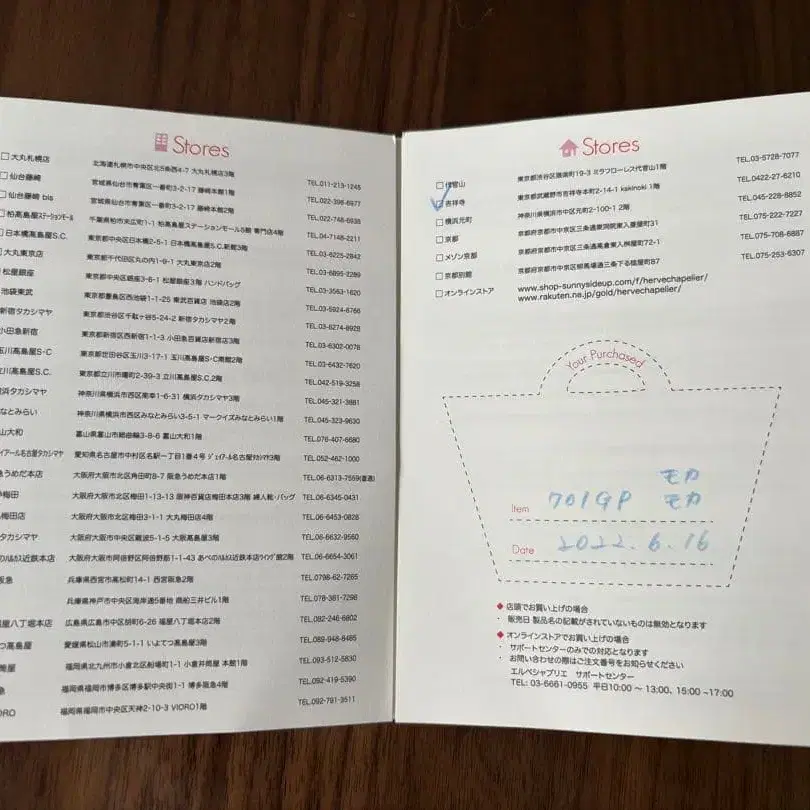 Stores
大丸札幌店 北海道札幌市中央区北5条西4-7 大丸札幌店3階 TEL.011-213-1245
仙台藤崎 宮城県仙台市青葉区一番町3-2-17 藤崎本館1階 TEL.022-398-6977
仙台藤崎 bis 宮城県仙台市青葉区一番町3-2-17 藤崎本館2階 TEL.022-748-6938
柏高島屋ステーションモール 千葉県柏市末広町1-1 柏高島屋ステーションモールS館 専門店4階 TEL.04-7148-2211
日本橋高島屋S.C. 東京都中央区日本橋2-5-1 日本橋高島屋S.C.新館3階 TEL.03-6225-2842
大丸東京店 東京都千代田区丸の内1-9-1 大丸東京店2階 TEL.03-6895-2289
松屋銀座 東京都中央区銀座3-6-1 松屋銀座3階 ハンドバッグ TEL.03-3563-1620
池袋東武 東京都豊島区西池袋1-1-25 東武百貨店 池袋店2階 TEL.03-5924-6766
新宿タカシマヤ 東京都渋谷区千駄ヶ谷5-24-2 新宿タカシマヤ2階 TEL.03-6274-8929
小田急新宿 東京都新宿区西新宿1-1-3 小田急百貨店新宿店3階 TEL.03-6302-0078
玉川高島屋S・C 東京都世田谷区玉川3-17-1 玉川高島屋S・C南館2階 TEL.03-6432-7620
立川高島屋S.C. 東京都立川市曙町2-39-3 立川高島屋S.C.2階 TEL.042-519-3258
横浜タカシマヤ 神奈川県横浜市西区南幸1-6-31 横浜タカシマヤ3階 TEL.045-321-3881
なとみらい 神奈川県横浜市西区みなとみらい3-5-1 マークイズみなとみらい1階 TEL.045-323-9630
山大和 富山県富山市総曲輪3-8-6 富山大和1階 TEL.076-407-6680
イアール名古屋タカシマヤ 愛知県名古屋市中村区名駅一丁目1番4号 ジェイアール名古屋タカシマヤ3階 TEL.052-462-1000
急うめだ本店 大阪府大阪市北区角田町8-7 阪急うめだ本店1階 TEL.06-6313-7559(直通)
神梅田 大阪府大阪市北区梅田1-13-13 阪神百貨店梅田本店3階 婦人靴・バッグ TEL.06-6345-0431
梅田店 大阪府大阪市北区梅田3-1-1 大丸梅田店4階 TEL.06-6453-0828
タカシマヤ 大阪府大阪市中央区難波5-1-5 大阪高島屋3階 TEL.06-6632-9560
のハルカス近鉄本店 大阪府大阪市阿倍野区阿倍野筋1-1-43 あべのハルカス近鉄本店ウイング館2階 TEL.06-6654-3061
阪急 兵庫県西宮市高松町14-1 西宮阪急2階 TEL.0798-62-7265
兵庫県神戸市中央区海岸通5番地 商船三井ビル1階 TEL.078-381-7298
屋八丁堀本店 広島県広島市中区胡町6-26 福屋八丁堀本店1階 TEL.082-246-6802
つ高島屋 愛媛県松山市湊町5-1-1 いよてつ高島屋3階 TEL.089-948-8485
筒屋 福岡県北九州市小倉北区船場町1-1 小倉井筒屋 本館1階 TEL.093-512-5830
急 福岡県福岡市博多区博多駅中央街1-1 博多阪急4階 TEL.092-419-5390
ORO 福岡県福岡市中央区天神2-10-3 VIORO1階 TEL.092-791-3511
Stores
代官山 東京都渋谷区猿楽町19-3 ミラフローレス代官山1階 TEL.03-5728-7077
吉祥寺 東京都武蔵野市吉祥寺本町2-14-1 kakinoki 1階 TEL.0422-27-6210
横浜元町 神奈川県横浜市中区元町2-100-1 2階 TEL.045-228-8852
京都 京都府京都市中京区三条通東洞院東入菱屋町31 TEL.075-222-7227
メゾン京都 京都府京都市中京区三条通高倉東入桝屋町72-1 TEL.075-708-6887
京都別館 京都府京都市中京区柳馬場通三条下る槌屋町87 TEL.075-253-6307
オンラインストア www.shop-sunnysideup.com/f/hervechapelier/
www.rakuten.ne.jp/gold/hervechapelier/
Your Purchased
モカ
Item 701GP モカ
Date 2022.6.16
◆ 店頭でお買い上げの場合
・ 販売日 製品名の記載がされていないものは無効となります
◆ オンラインストアでお買い上げの場合
・ サポートセンターのみでの対応となります
・ お問い合わせの際はご注文番号をお知らせください
エルベシャプリエ サポートセンター
TEL: 03-6661-0955 平日10:00 〜 13:00、15:00 ~17:00